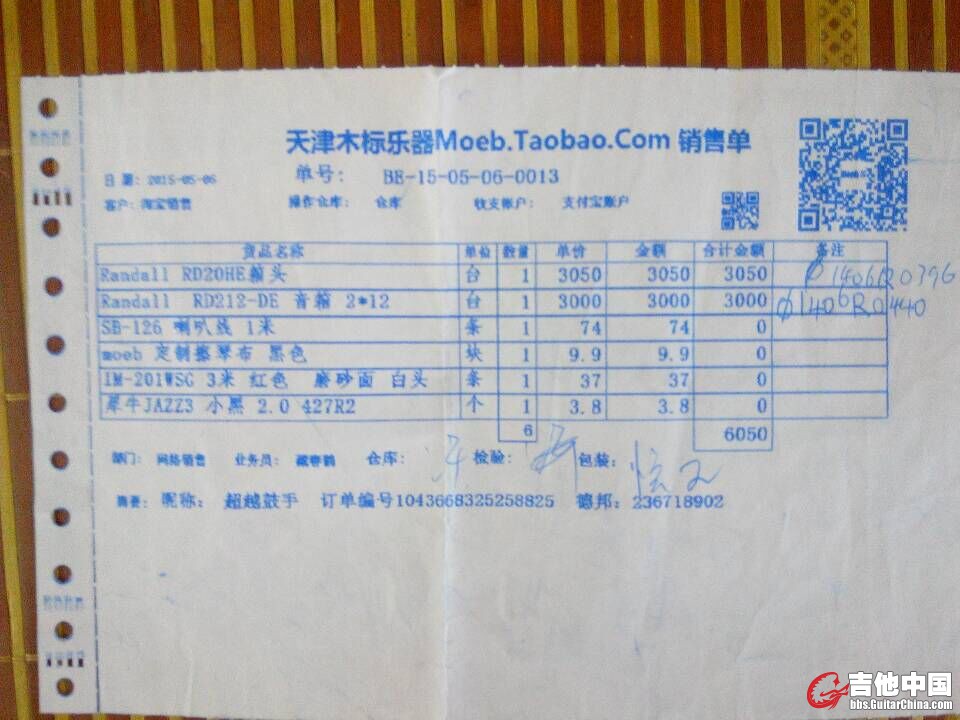 天津木标乐器Moeb.Taobao.Com 销售单
日期：2015-05-06 单号： BB-15-05-06-0013
客户：淘宝销售 操作仓库： 仓库 收支账户： 支付宝账户
货品名称 单位 数量 单价 金额 合计金额 备注
Randall RD20HE箱头 台 1 3050 3050 3050 1406R0396
Randall RD212-DE 音箱 2*12 台 1 3000 3000 3000 1406R0440
SB-126 喇叭线 1米 条 1 74 74 0
moeb 定制擦琴布 黑色 块 1 9.9 9.9 0
IM-201WSG 3米 红色 磨砂面 白头 条 1 37 37 0
犀牛JAZZ3 小黑 2.0 427R2 个 1 3.8 3.8 0
6 6050
部门： 网络销售 业务员： 仓库： 检验： 包装：
摘要： 昵称： 超越鼓手 订单编号1043668325258825 德邦：236718902
吉他中国
bbs.GuitarChina.com